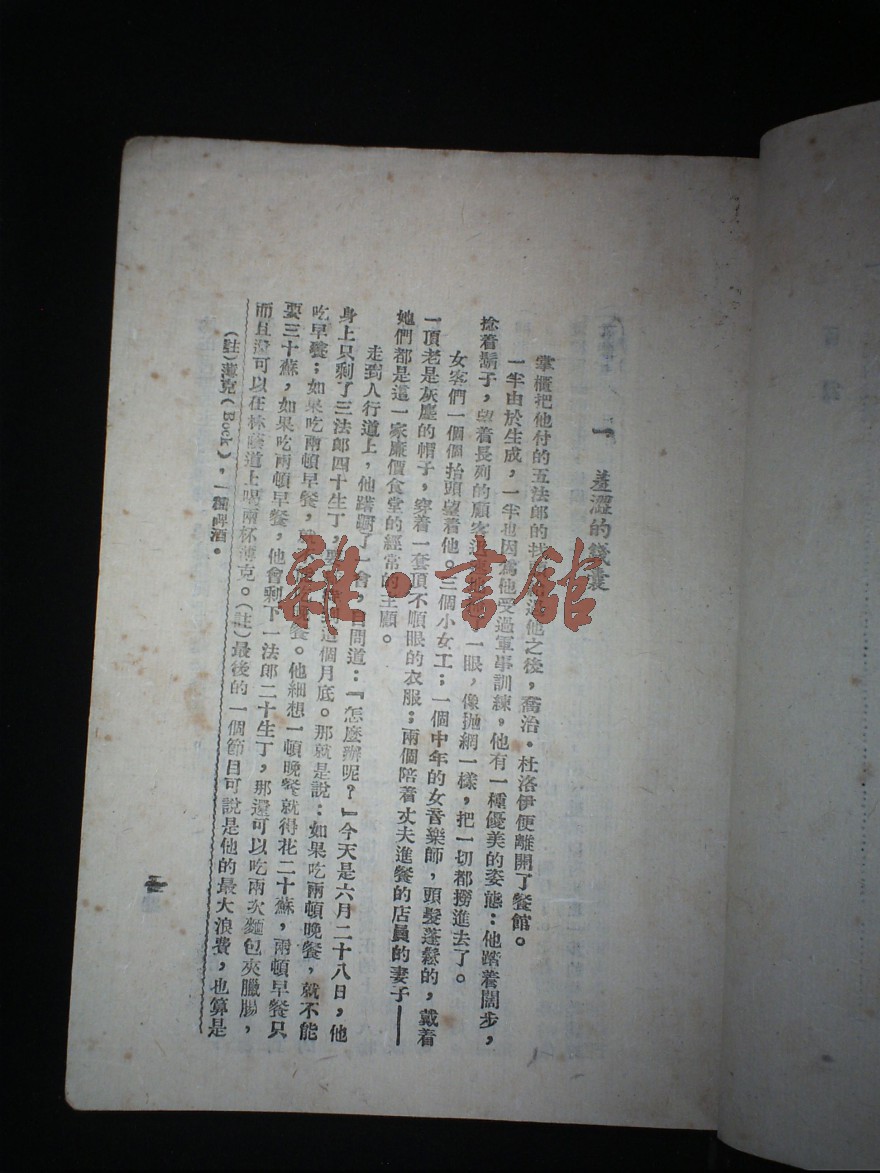 一 羞澀的錢囊
掌櫃把他付的五法郎的找 他之後，喬治·杜洛伊便離開了餐館。
一半由於生成，一半也因爲他受過軍事訓練，他有一種優美的姿態：他踏着闊步，
捻着鬍子，望着長列的顧客 一眼，像拋網一樣，把一切都撈進去了。
女客們一個個抬頭望着他。三個小女工；一個中年的女音樂師，頭髮蓬鬆的，戴着
一頂老是灰塵的帽子，穿着一套頂不順眼的衣服；兩個陪着丈夫進餐的店員的妻子——
她們都是這一家廉價食堂的經常的主顧。
走到人行道上，他躊躇了一會，自問道：『怎麼辦呢？』今天是六月二十八日，他
身上只剩了三法郎四十生丁， 這個月底。那就是說：如果吃兩頓晚餐，就不能
吃早餐；如果吃兩頓早餐， 餐。他細想一頓晚餐就得花二十蘇，兩頓早餐只
要三十蘇，如果吃兩頓早餐，他會剩下一法郎二十生丁，那還可以吃兩次麵包夾臘腸，
而且還可以在林蔭道上喝兩杯薄克。（註）最後的一個節目可說是他的最大浪費，也算是
（註）薄克（Bock），一種啤酒。
一
雜·書館